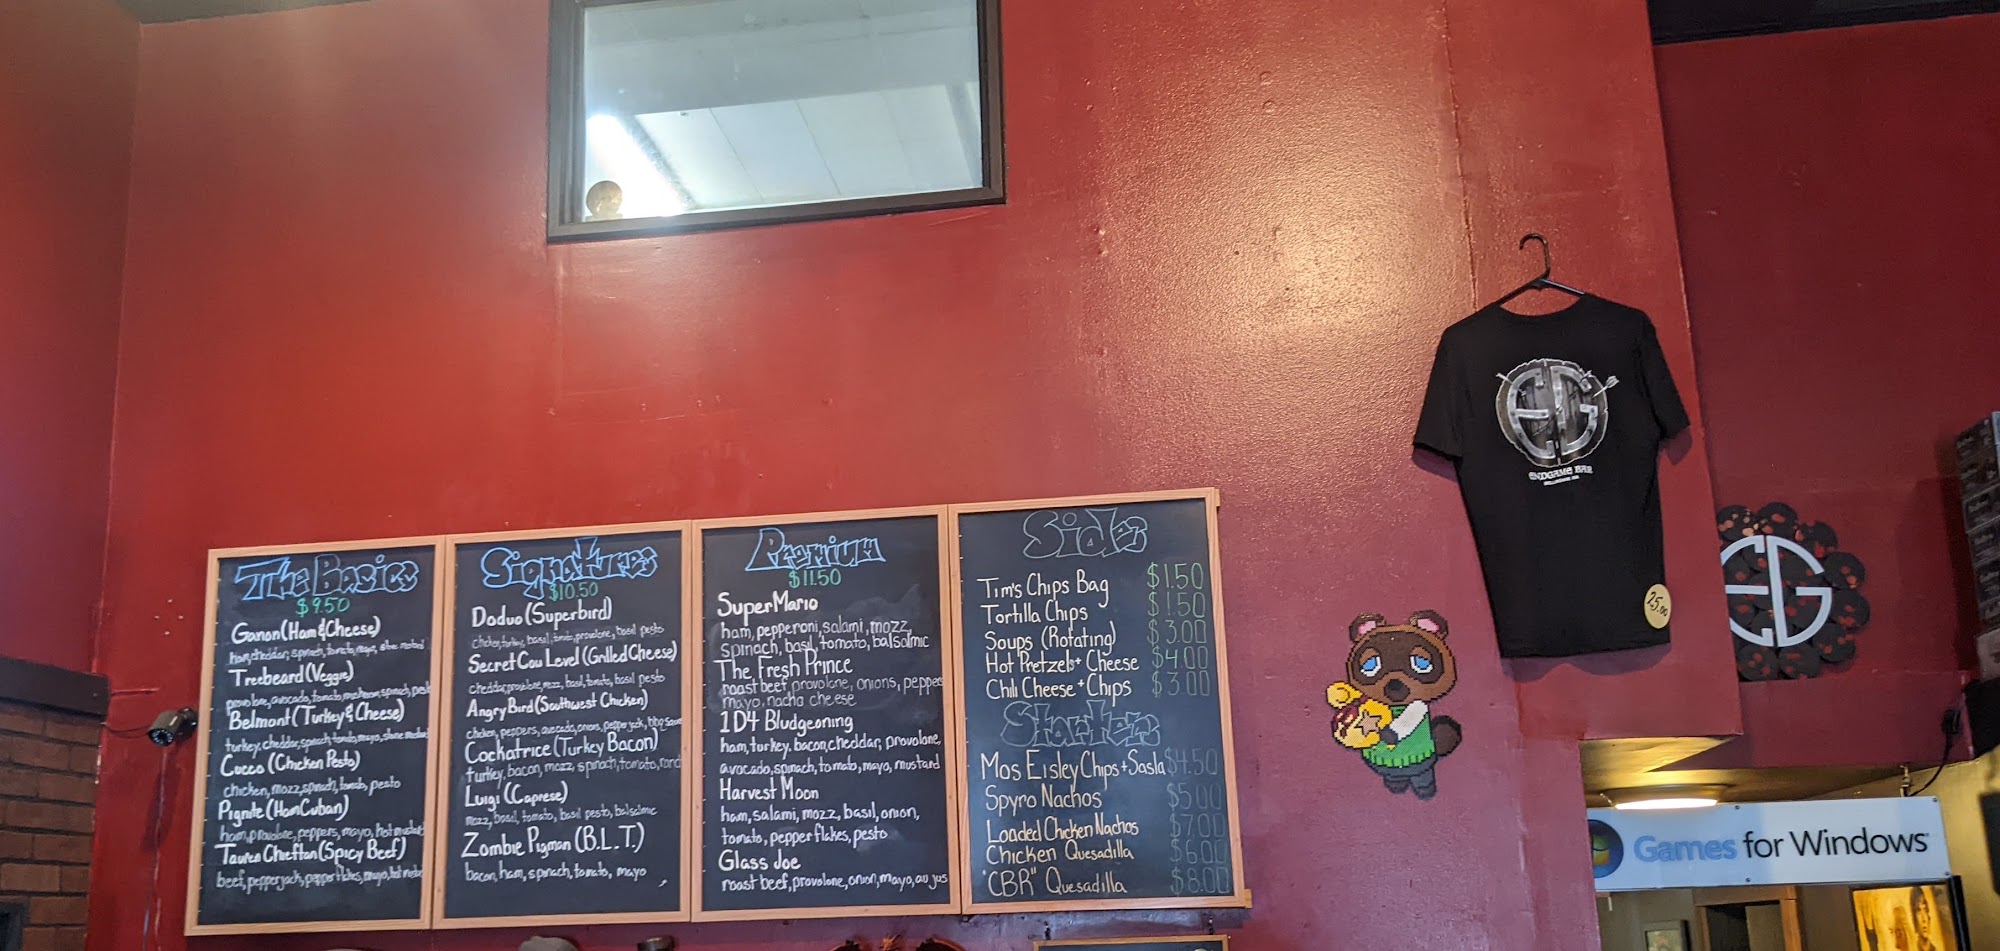 The Basics
$9.50
Ganon (Ham & Cheese)
ham, cheddar, spinach, tomato, mayo, stone mustard
Treebeard (Veggie)
provolone, avocado, tomato, mushroom, spinach,
Belmont (Turkey & Cheese)
turkey, cheddar, spinach, tomato, mayo, stone
Cucco (Chicken Pesto)
chicken, mozz, spinach, tomato, pesto
Pignite (Ham Cuban)
ham, provolone, peppers, mayo, hot mustard
Tauren Chieftan (Spicy Beef)
beef, pepperjack, pepper flakes, mayo, hot
Signatures
$10.50
Doduo (Superbird)
chicken, turkey, basil, tomato, provolone, basil pesto
Secret Cow Level (Grilled Cheese)
cheddar, provolone, mozz, basil, tomato, basil pesto
Angry Bird (Southwest Chicken)
chicken, peppers, avocado, onions, pepperjack, bbq sauce
Cockatrice (Turkey Bacon)
turkey, bacon, mozz, spinach, tomato, ranch
Luigi (Caprese)
mozz, basil, tomato, basil pesto, balsalmic
Zombie Pigman (B.L.T.)
bacon, ham, spinach, tomato, mayo
Premium
$11.50
Super Mario
ham, pepperoni, salami, mozz,
spinach, basil, tomato, balsalmic
The Fresh Prince
roast beef, provolone, onions, peppers
mayo, nacha cheese
1D4 Bludgeoning
ham, turkey, bacon, cheddar, provolone,
avocado, spinach, tomato, mayo, mustard
Harvest Moon
ham, salami, mozz, basil, onion,
tomato, pepper flakes, pesto
Glass Joe
roast beef, provolone, onion, mayo, au jus
Side
Tim's Chips Bag $1.50
Tortilla Chips $1.50
Soups (Rotating) $3.00
Hot Pretzels + Cheese $4.00
Chili Cheese + Chips $3.00
Starters
Mos Eisley Chips + Sasla $4.50
Spyro Nachos $5.00
Loaded Chicken Nachos $7.00
Chicken Quesadilla $6.00
"CBR" Quesadilla $8.00
EG
ENDGAME BAR
25.00
EG
Games for Windows